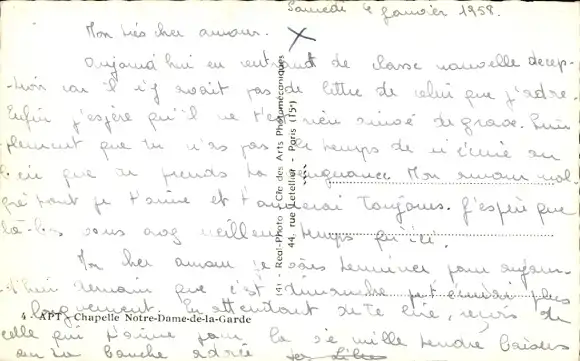 Samedi 4 janvier 1958.
Mon très cher amour.
Aujourd'hui en rentrant de classe nouvelle décep-
-tion car il n'y avait pas de lettre de celui que j'adore.
Enfin j'espère qu'il ne t'est rien arrivé de grave. Sim-
plement que tu n'as pas le temps de m'écrire ou
bien que tu prends ta vengeance. Mon amour mal-
gré tout je t'aime et t'aimerai toujours. J'espère que
là-bas vous avez meilleur temps qu'ici.
Mon cher amour je vais terminer pour aujour-
-d'hui demain que c'est dimanche je t'écrirai plus
longuement. En attendant de te lire, reçois de
celle qui t'aime pour la vie mille tendres baisers
sur ta bouche adorée
4 - APT - Chapelle Notre-Dame-de-la-Garde
Real-Photo - Cie des Arts Photomécaniques
44, rue Letellier - Paris (15e)